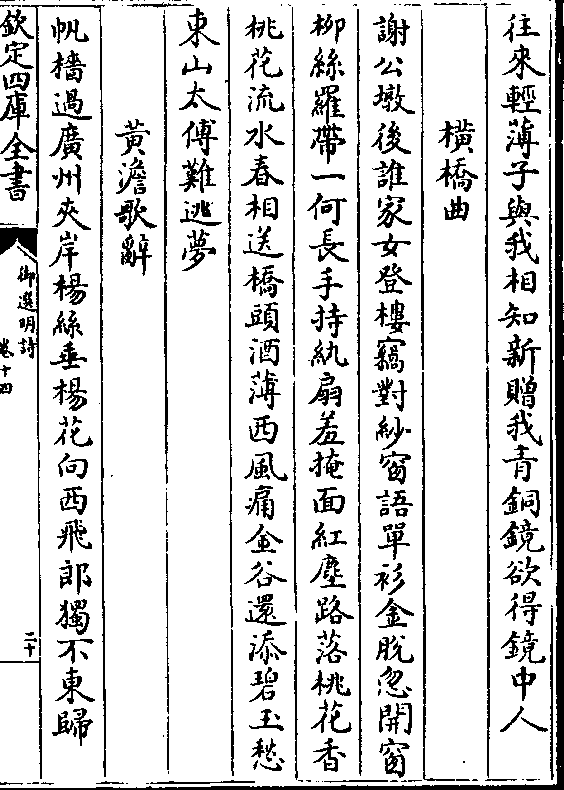 往來輕薄子與我相知新贈我青銅鏡欲得鏡中人
橫橋曲
謝公墩後誰家女登樓竊對紗窗語單衫金脫忽開窗
柳絲羅帶一何長手持紈扇羞掩面紅塵路落桃花香
桃花流水春相送橋頭酒薄西風痛金谷還添碧玉愁
東山太傅難逃夢
黃澹歌辭
帆檣過廣州夾岸楊絲垂楊花向西飛郎獨不東歸
欽定四庫全書
御選明詩
卷十四
二十